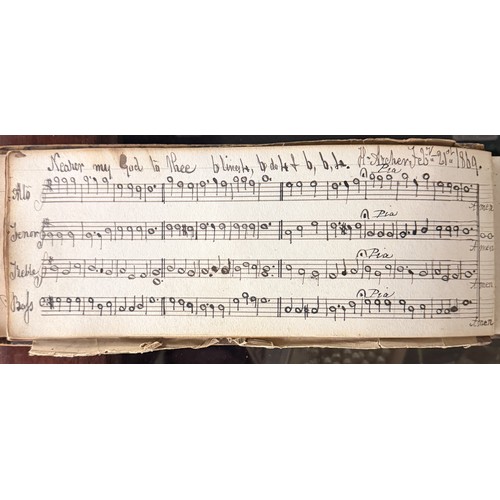 Nearer my God to Thee 6 lines, 6, do 4 & 6, 6, 4. H. Archer, Feby 21st 1869.
Alto Pia Amen
Tenor Pia Amen
Treble Pia Amen
Bass Pia Amen